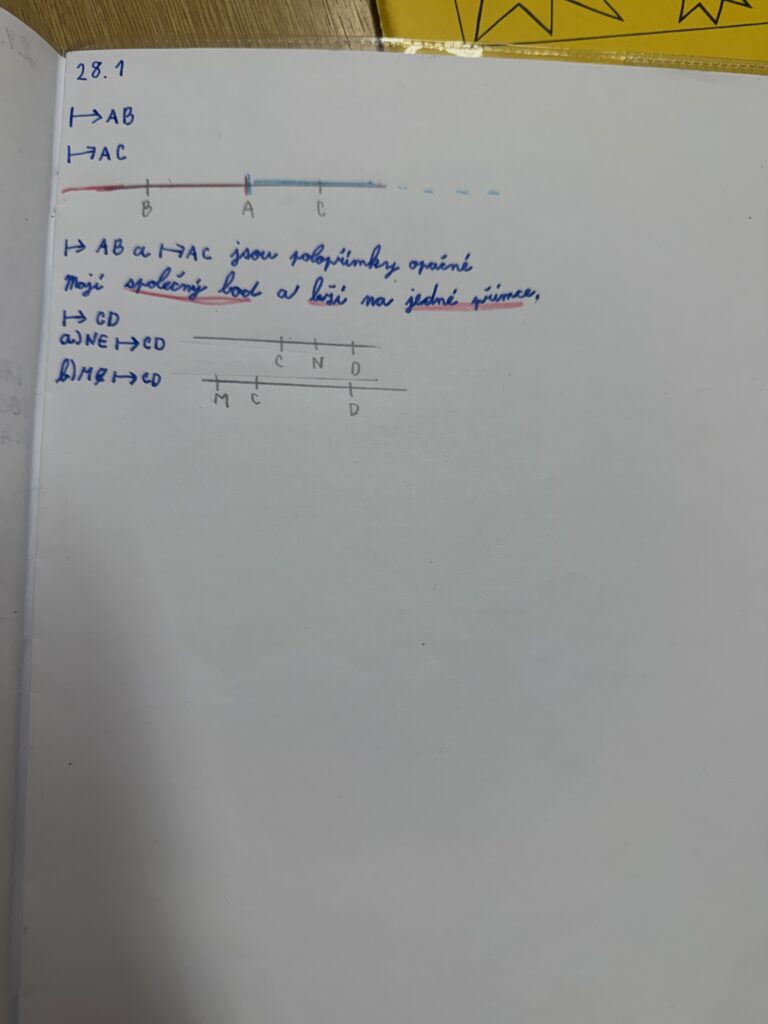 28.1
↦ AB
↦ AC
B A C
↦ AB a ↦ AC jsou polopřímky opačné
Mají společný bod a leží na jedné přímce.
↦ CD
a) N∈ ↦ CD
C N D
b) M∉ ↦ CD
M C D